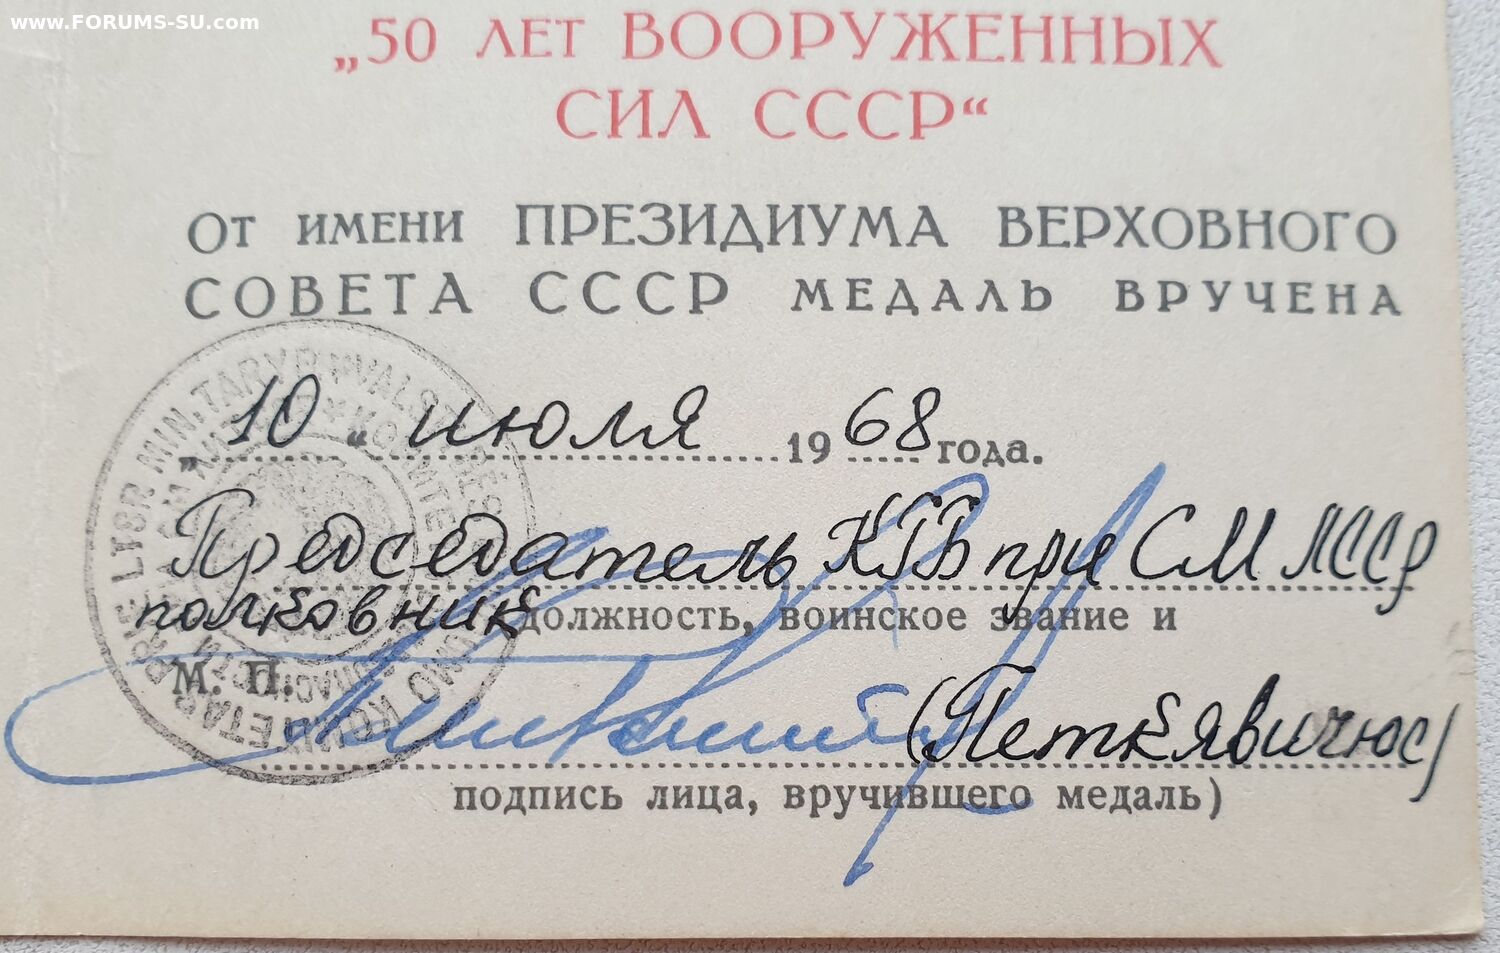 www.FORUMS-SU.com
„50 ЛЕТ ВООРУЖЕННЫХ
СИЛ СССР“
От имени ПРЕЗИДИУМА ВЕРХОВНОГО
СОВЕТА СССР МЕДАЛЬ ВРУЧЕНА
„10“ июля 1968 года.
Председатель КГБ при СМ ЛССР
полковник должность, воинское звание и
М. П.
(Петкявичюс)
подпись лица, вручившего медаль)
LTSR MIN. TARYB